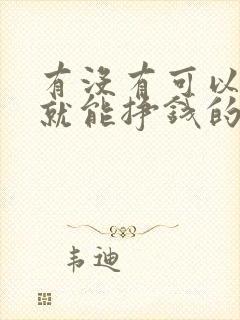 有没有可以
就能挣钱的
韦迪